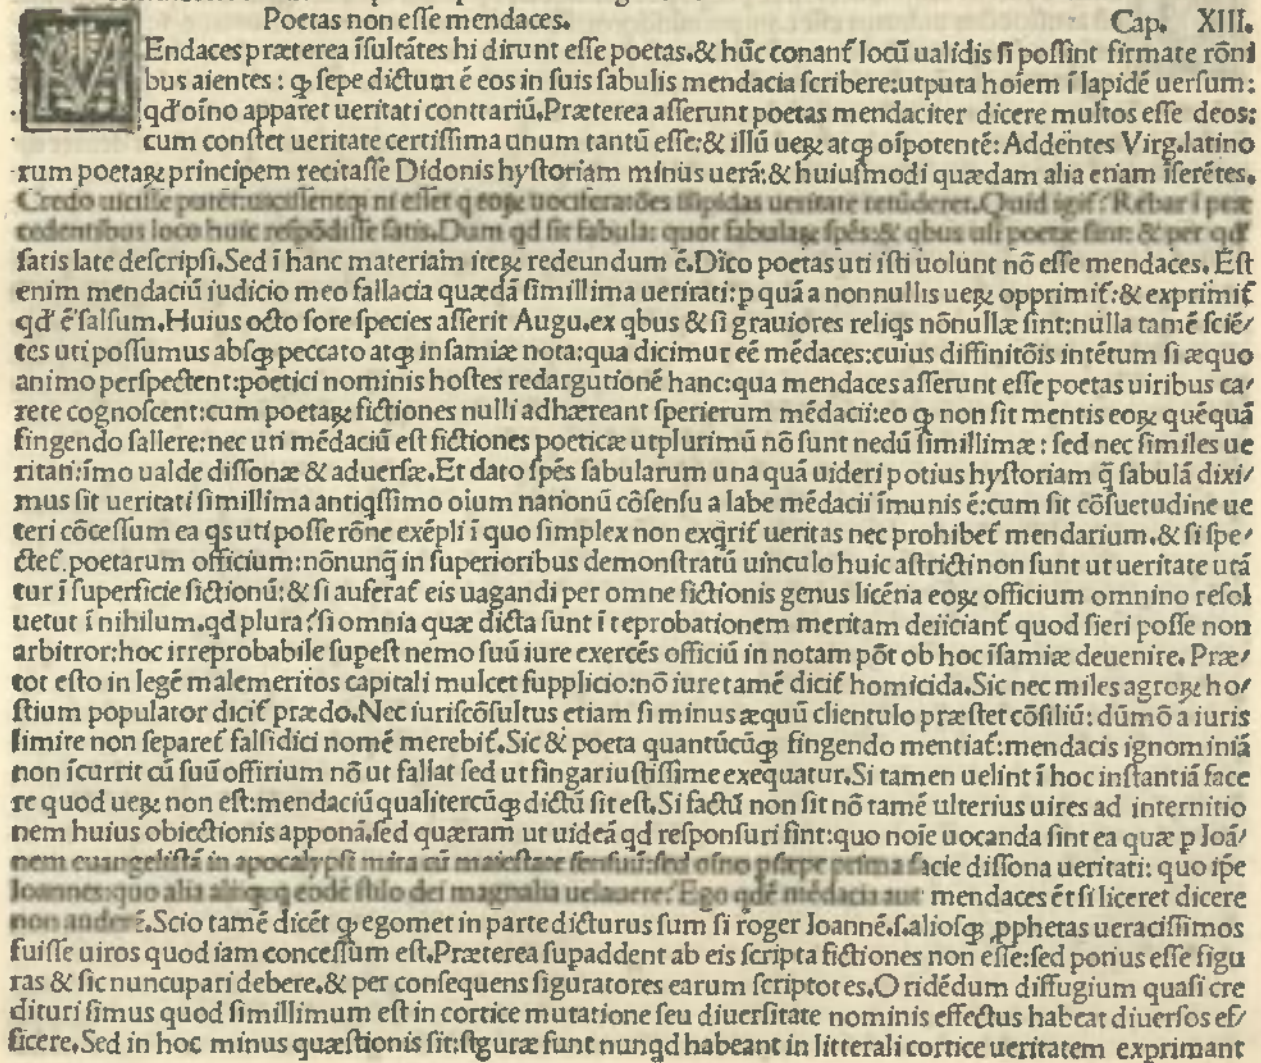 Poetas non eſſe mendaces. Cap. XIII.
MEndaces præterea iſultātes hi dirunt eſſe poetas.& hūc conanť locū ualidis ſi poſſint firmate rōni
bus aientes : ꝙ ſepe dictum ē eos in ſuis fabulis mendacia ſcribere:utputa hoiem ī lapidē uerſum:
qď oīno apparet ueritati conttariū.Præterea aſſerunt poetas mendaciter dicere multos eſſe deos:
cum conſtet ueritate certiſſima unum tantū eſſe:& illū ueꝝ atqꝫ oīpotentē: Addentes Virg.latino
rum poetaꝝ principem recitaſſe Didonis hyſtoriam minus uerā:& huiuſmodi quædam alia etiam īſerētes.
ſatis late deſcripſi.Sed ī hanc materiam iteꝝ redeundum ē.Dico poetas uti iſti uolunt nō eſſe mendaces. Eſt
enim mendaciū iudicio meo fallacia quædā ſimillima ueritati:p quā a nonnullis ueꝝ opprimiť:& exprimiť
qď ē falſum.Huius octo fore ſpecies aſſerit Augu.ex qbus & ſi grauiores reliqs nōnullæ ſint:nulla tamē ſciē/
tes uti poſſumus abſqꝫ peccato atqꝫ infamiæ nota:qua dicimur eē mēdaces:cuius diffinitōis intētum ſi æquo
animo perſpectent:poetici nominis hoſtes redargutionē hanc:qua mendaces aſſerunt eſſe poetas uiribus ca/
rete cognoſcent:cum poetaꝝ fictiones nulli adhæreant ſperierum mēdacii:eo ꝙ non ſit mentis eoꝝ quēquā
fingendo fallere:nec uti mēdaciū eſt fictiones poeticæ utplurimū nō ſunt nedū ſimillimæ : ſed nec ſimiles ue
ritati:īmo ualde diſſonæ & aduerſæ.Et dato ſpēs fabularum una quā uideri potius hyſtoriam q̄ fabulā dixi/
mus ſit ueritati ſimillima antiqſſimo oium nationū cōſenſu a labe mēdacii īmunis ē:cum ſit cōſuetudine ue
teri cōceſſum ea qs uti poſſe rōne exēpli ī quo ſimplex non exqriť ueritas nec prohibeť mendarium.& ſi ſpe/
cteť.poetarum officium:nōnunq̄ in ſuperioribus demonſtratū uinculo huic aſtricti non ſunt ut ueritate utā
tur ī ſuperficie fictionū:& ſi auferať eis uagandi per omne fictionis genus licētia eoꝝ officium omnino reſol
uetut ī nihilum.qd plura?ſi omnia quæ dicta ſunt ī reprobationem meritam deiicianť quod fieri poſſe non
arbitror:hoc irreprobabile ſupeſt nemo ſuū iure exercēs officiū in notam pōt ob hoc īfamiæ deuenire. Præ/
tot eſto in legē malemeritos capitali mulcet ſupplicio:nō iure tamē diciť homicida.Sic nec miles agroꝝ ho/
ſtium populator diciť prædo.Nec iuriſcōſultus etiam ſi minus æquū clientulo præſtet cōſiliū: dūmō a iuris
limite non ſepareť falſidici nomē merebiť.Sic & poeta quantūcūqꝫ fingendo mentiať:mendacis ignominiā
non īcurrit cū ſuū offirium nō ut fallat ſed ut fingat iuſtiſſime exequatur.Si tamen uelint ī hoc inſtantiā face
re quod ueꝝ non eſt:mendaciū qualitercūqꝫ dictū ſit eſt.Si factū non ſit nō tamē ulterius uires ad internitio
nem huius obiectionis apponā.ſed quæram ut uideā qd reſponſuri ſint:quo noīe uocanda ſint ea quæ p Ioā/
facie diſſona ueritati: quo ipē
mendaces ēt ſi liceret dicere
Scio tamē dicēt ꝙ egomet in parte dicturus ſum ſi roger Ioannē.ſ.alioſqꝫ ꝓphetas ueraciſſimos
fuiſſe uiros quod iam conceſſum eſt.Præterea ſupaddent ab eis ſcripta fictiones non eſſe:ſed potius eſſe figu
ras & ſic nuncupari debere.& per conſequens figuratores earum ſcriptotes.O ridēdum diffugium quaſi cre
dituri ſimus quod ſimillimum eſt in cortice mutatione ſeu diuerſitate nominis effectus habeat diuerſos ef/
ficere.Sed in hoc minus quæſtionis ſit:figuræ ſunt nunqd habeant in litterali cortice ueritatem exprimant